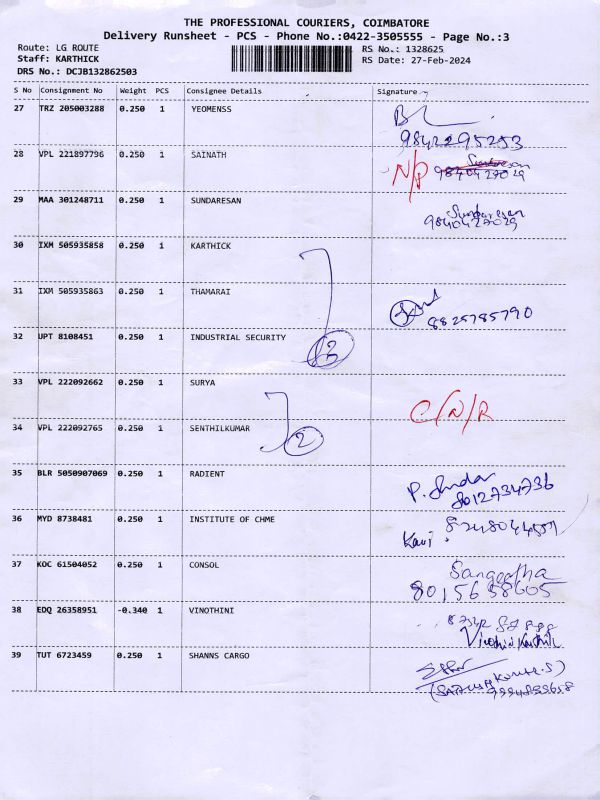 THE PROFESSIONAL COURIERS, COIMBATORE
Delivery Runsheet - PCS - Phone No.:0422-3505555 - Page No.:3
Route: LG ROUTE RS No.: 1328625
Staff: KARTHICK RS Date: 27-Feb-2024
DRS No.: DCJB132862503
S No Consignment No Weight PCS Consignee Details Signature
27 TRZ 205003288 0.250 1 YEOMENSS
9842295253
28 VPL 221897796 0.250 1 SAINATH N/P Sundaresan
9840427029
29 MAA 301248711 0.250 1 SUNDARESAN Sundaresan
9840427029
30 IXM 505935858 0.250 1 KARTHICK
31 IXM 505935863 0.250 1 THAMARAI
8825785790
32 UPT 8108451 0.250 1 INDUSTRIAL SECURITY 3
33 VPL 222092662 0.250 1 SURYA C/N/R
34 VPL 222092765 0.250 1 SENTHILKUMAR 2
35 BLR 5050907069 0.250 1 RADIENT P.
8012734736
36 MYD 8738481 0.250 1 INSTITUTE OF CHME
Kavi.
37 KOC 61504052 0.250 1 CONSOL Sangeetha
8015658605
38 EDQ 26358951 -0.340 1 VINOTHINI
Vinothini Karthik
39 TUT 6723459 0.250 1 SHANNS CARGO